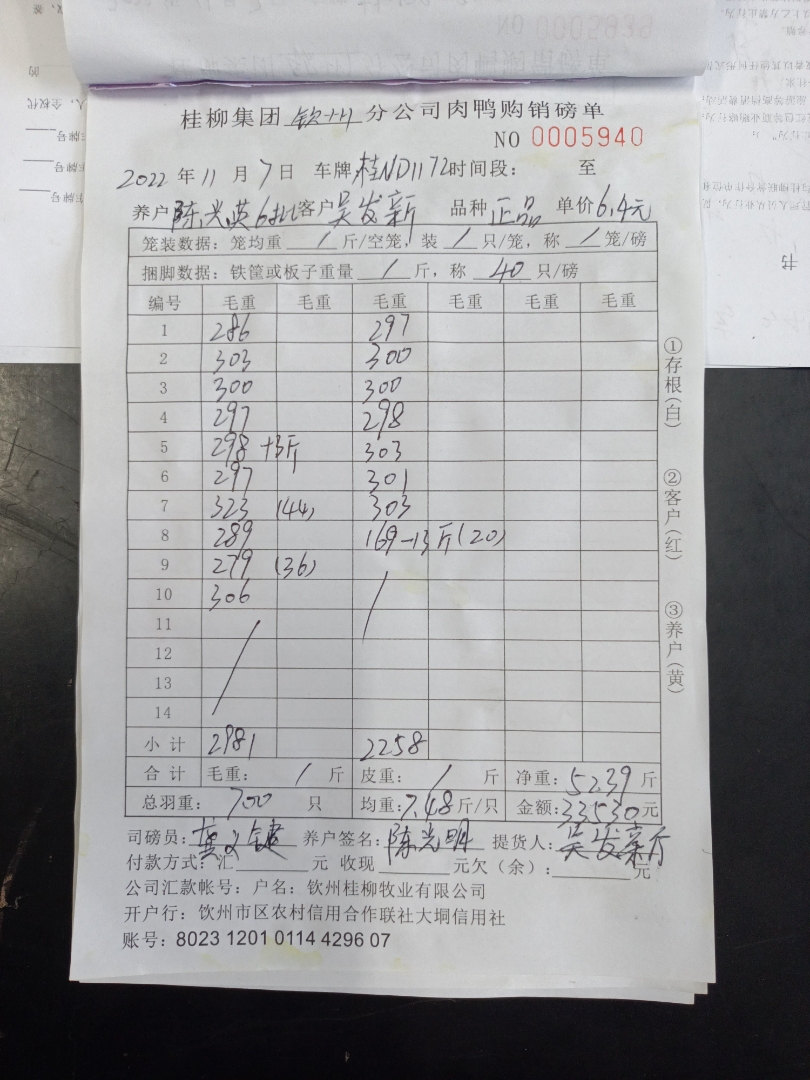 NO 0005939
桂柳集团 钦州 分公司肉鸭购销磅单
NO 0005940
2022 年 11 月 7 日 车牌:桂ND1172 时间段: 至
养户 陈光英6批 客户 吴发新 品种 正品 单价 6.4元
笼装数据: 笼均重 / 斤/空笼, 装 / 只/笼, 称 / 笼/磅
捆脚数据: 铁筐或板子重量 / 斤, 称 40 只/磅
编号 毛重 毛重 毛重 毛重 毛重 毛重
1 286 297
2 303 300
3 300 300
4 297 298
5 298 +3斤 303
6 297 301
7 323 (44) 303
8 289 169-13斤(20)
9 279 (36)
10 306
11
12
13
14
小计 2981 2258
合计 毛重: / 斤 皮重: / 斤 净重: 5239 斤
总羽重: 700 只 均重: 7.48 斤/只 金额: 33530 元
司磅员: 养户签名: 陈光明 提货人: 吴发新
付款方式: 汇 元 收现 元欠(余): 元
公司汇款帐号: 户名: 钦州桂柳牧业有限公司
开户行: 钦州市区农村信用合作联社大垌信用社
账号: 8023 1201 0114 4296 07
①存根(白)
②客户(红)
③养户(黄)